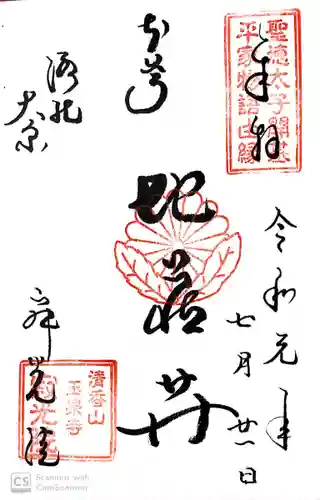 奉拝
聖徳太子開基
平家物語由縁
令和元年
七月廿一日
本尊
地蔵𦬇
洛北
大原
寂光院
清香山
玉泉寺
寂光院
CS
Scanned with
CamScanner